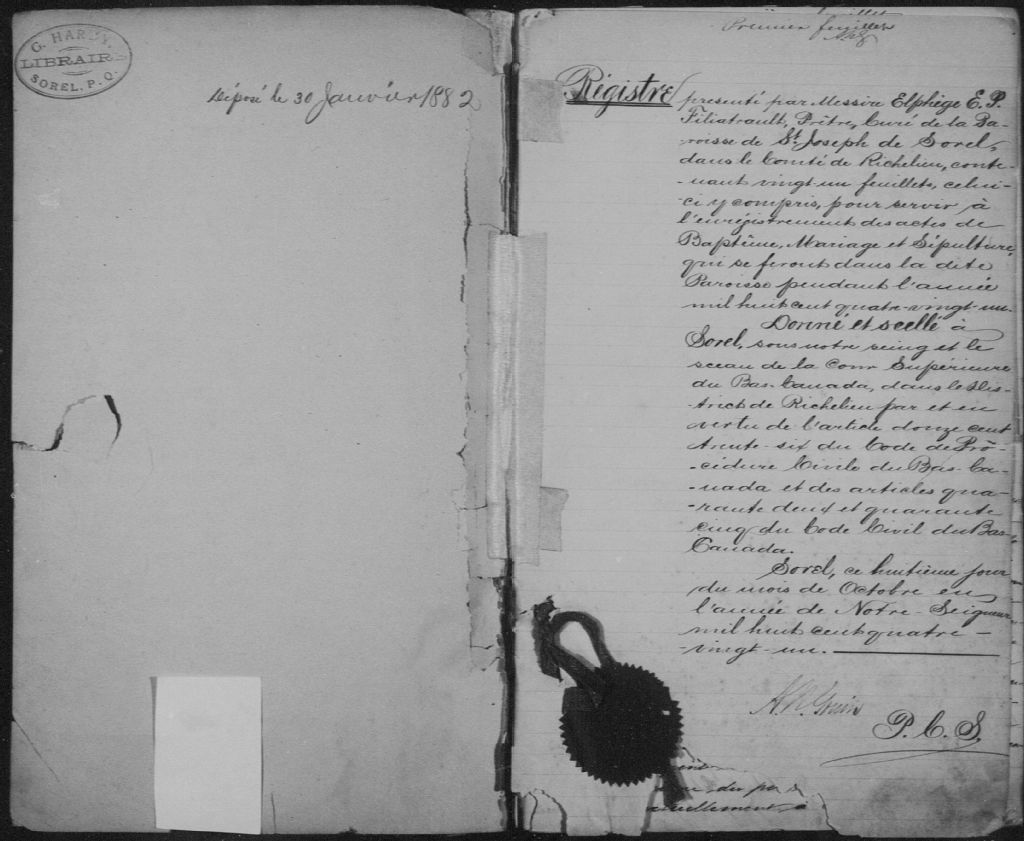 G. HARDY,
LIBRAIRE
SOREL, P. Q.
Déposé le 30 Janvier 1882
feuillet
Premier feuillet
Régistre presenté par Messire Elphège E. P.
Filiatrault, Prêtre, Curé de la Pa-
roisse de St. Joseph de Sorel,
dans le Comté de Richelieu, conte-
-nant vingt-un feuillets, celui-
-ci y compris, pour servir à
l'enrégistrement des actes de
Baptême, Mariage et Sépulture,
qui se feront dans la dite
Paroisse pendant l'année
mil huit cent quatre-vingt-un.
Donné et scellé à
Sorel, sous notre seing et le
sceau de la Cour Supérieure
du Bas-Canada, dans le Dis-
-trict de Richelieu par et en
vertu de l'article douze cent
trente-six du Code de Pro-
-cédure Civile du Bas-Ca-
-nada et des articles qua-
-rante deux et quarante
cinq du Code Civil du Bas-
Canada.
Sorel, ce huitième jour
du mois de Octobre en
l'année de Notre-Seigneur
mil huit cent quatre-
-vingt-un.
P. C. S.
du